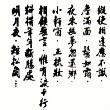 縱使相逢應不識
塵滿面，鬢如霜。
夜來幽夢忽還鄉
小軒窗，正梳妝。
相顧無言，惟有淚千行
料得年年腸斷處
明月夜，短松岡。